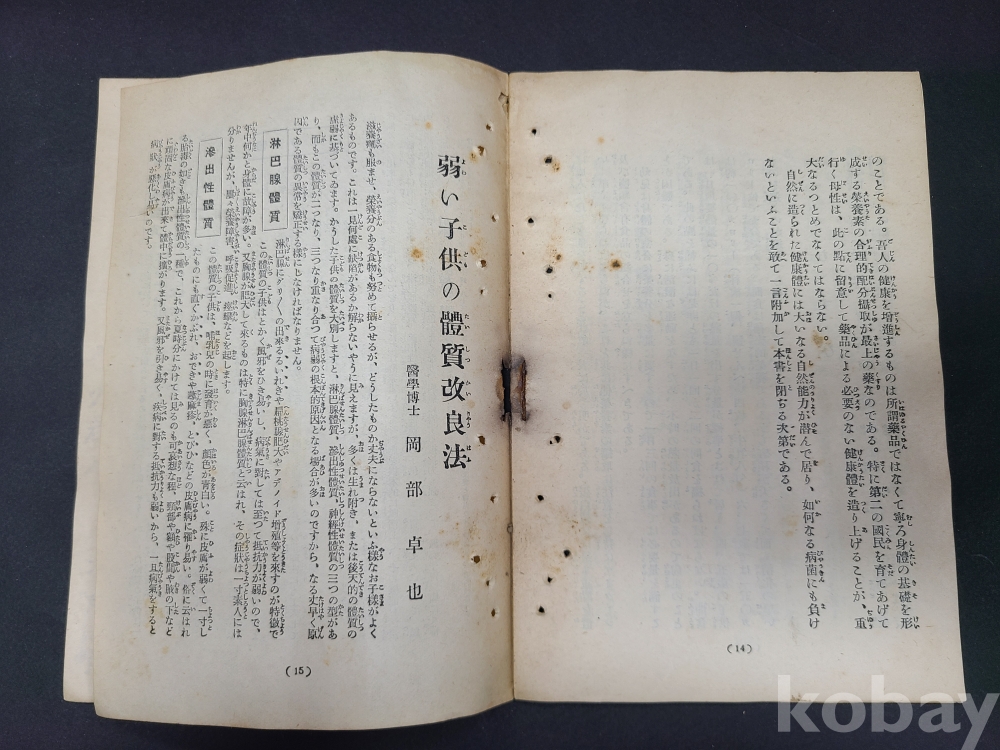 のことである。吾人の健康を增進するものは所謂藥品ではなくて寧ろ身體の基礎を形
成する榮養素の合理的配分攝取が最上の藥なのである。特に第二の國民を育てあげて
行く母性は、此の點に留意して藥品による必要のない健康體を造り上げることが、重
大なるつとめでなくてはならない。
自然に造られた健康體には大いなる自然能力が潜んで居り、如何なる病菌にも負け
ないといふことを敢て一言附加して本書を閉ぢる次第である。
(14)
弱い子供の體質改良法
醫學博士 岡部卓也
滋養劑も服ませ、榮養分のある食物も努めて攝らせるが、どうしたものか丈夫にならないといふ樣なお子樣がよく
あるものです。これは一見何處に缺陷があるか解らないやうに見えますが、多くは生れ附き、または後天的の體質の
虛弱に基づいてゐます。かうした子供の體質を大別しますと、淋巴腺體質、滲出性體質、神經性體質の三つの型があ
り、而もこの體質が二つなり、三つなり重なり合つて病弱の根本的原因となる場合が多いのですから、なる丈早く原
因である體質の異常を矯正する樣にしなければなりません。
淋巴腺體質
淋巴腺にグリ〳〵の出來るるいれきや扁桃腺肥大やアデノイド增殖等を來すのが特徵で
この體質の子供はとかく風邪をひき易いし、病氣に對しては至つて抵抗力が弱いので、
年中何かと身體に故障が多い。又胸腺が肥大して來るものは特に胸腺淋巴腺體質と云はれ、その症狀は一寸素人には
分りませんが、屢々榮養障害、呼吸促進、痙攣などを起します。
滲出性體質
この體質の子供は、哺乳兒の時に發育が惡く、顏色が靑白い。殊に皮膚が弱くて一寸し
たものにも直ぐかぶれ、おできや蕁麻疹、とびひなどの皮膚病に罹り易い。俗に云はれ
る胎毒の如きも滲出性體質の一種で、これから夏時分にかけては見るのも可哀想な程、頸部や顏や股間や腋の下など
に頑固な皮膚病が出來て體中に擴がります。又風邪を引き易く、疾病に對する抵抗力も弱いから、一旦病氣をすると
病狀が惡化し易いのです。
(15)
kobay